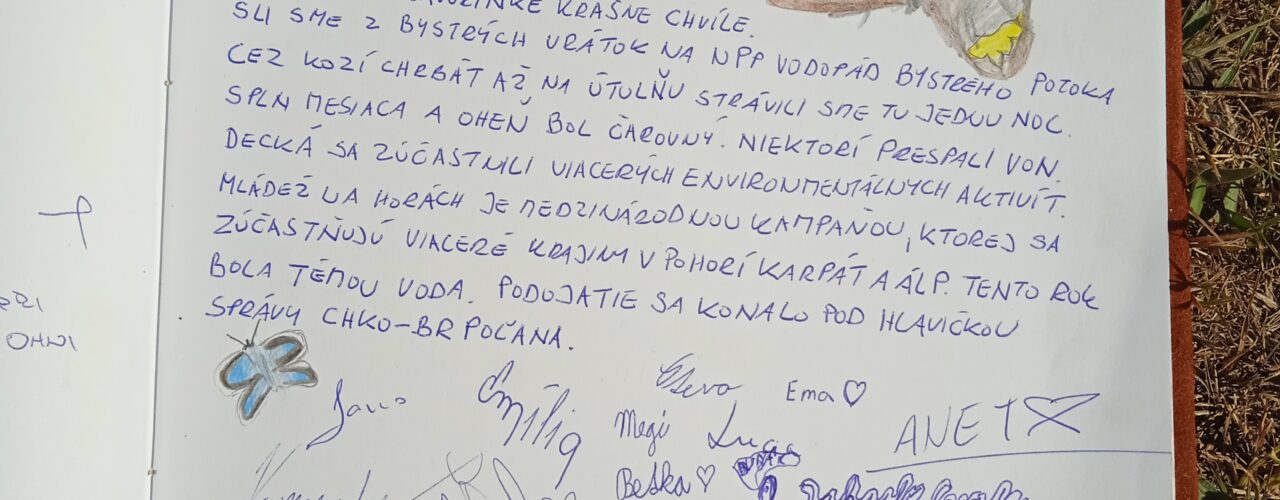 KRÁSNE CHVÍLE.
SLI SME Z BYSTRÝCH VRÁTOK NA NPP VODOPÁD BYSTRÉHO POTOKA
CEZ KOZÍ CHRBÁT AŽ NA ÚTULŇU STRÁVILI SME TU JEDNU NOC.
SPLN MESIACA A OHEŇ BOL ČAROVNÝ. NIEKTORÍ PRESPALI VON.
DECKÁ SA ZÚČASTNILI VIACERÝCH ENVIRONMENTÁLNYCH AKTIVÍT.
MLÁDEŽ NA HORÁCH JE MEDZINÁRODNOU KAMPAŇOU, KTOREJ SA
ZÚČASTŇUJÚ VIACERÉ KRAJINY V POHORÍ KARPÁT A ÁLP. TENTO ROK
BOLA TÉMOU VODA. PODUJATIE SA KONALO POD HLAVIČKOU
SPRÁVY CHKO-BR POĽANA.
OHNI
Emília
Ema ♡
Megi
Lucas
ANET
Beška ♡